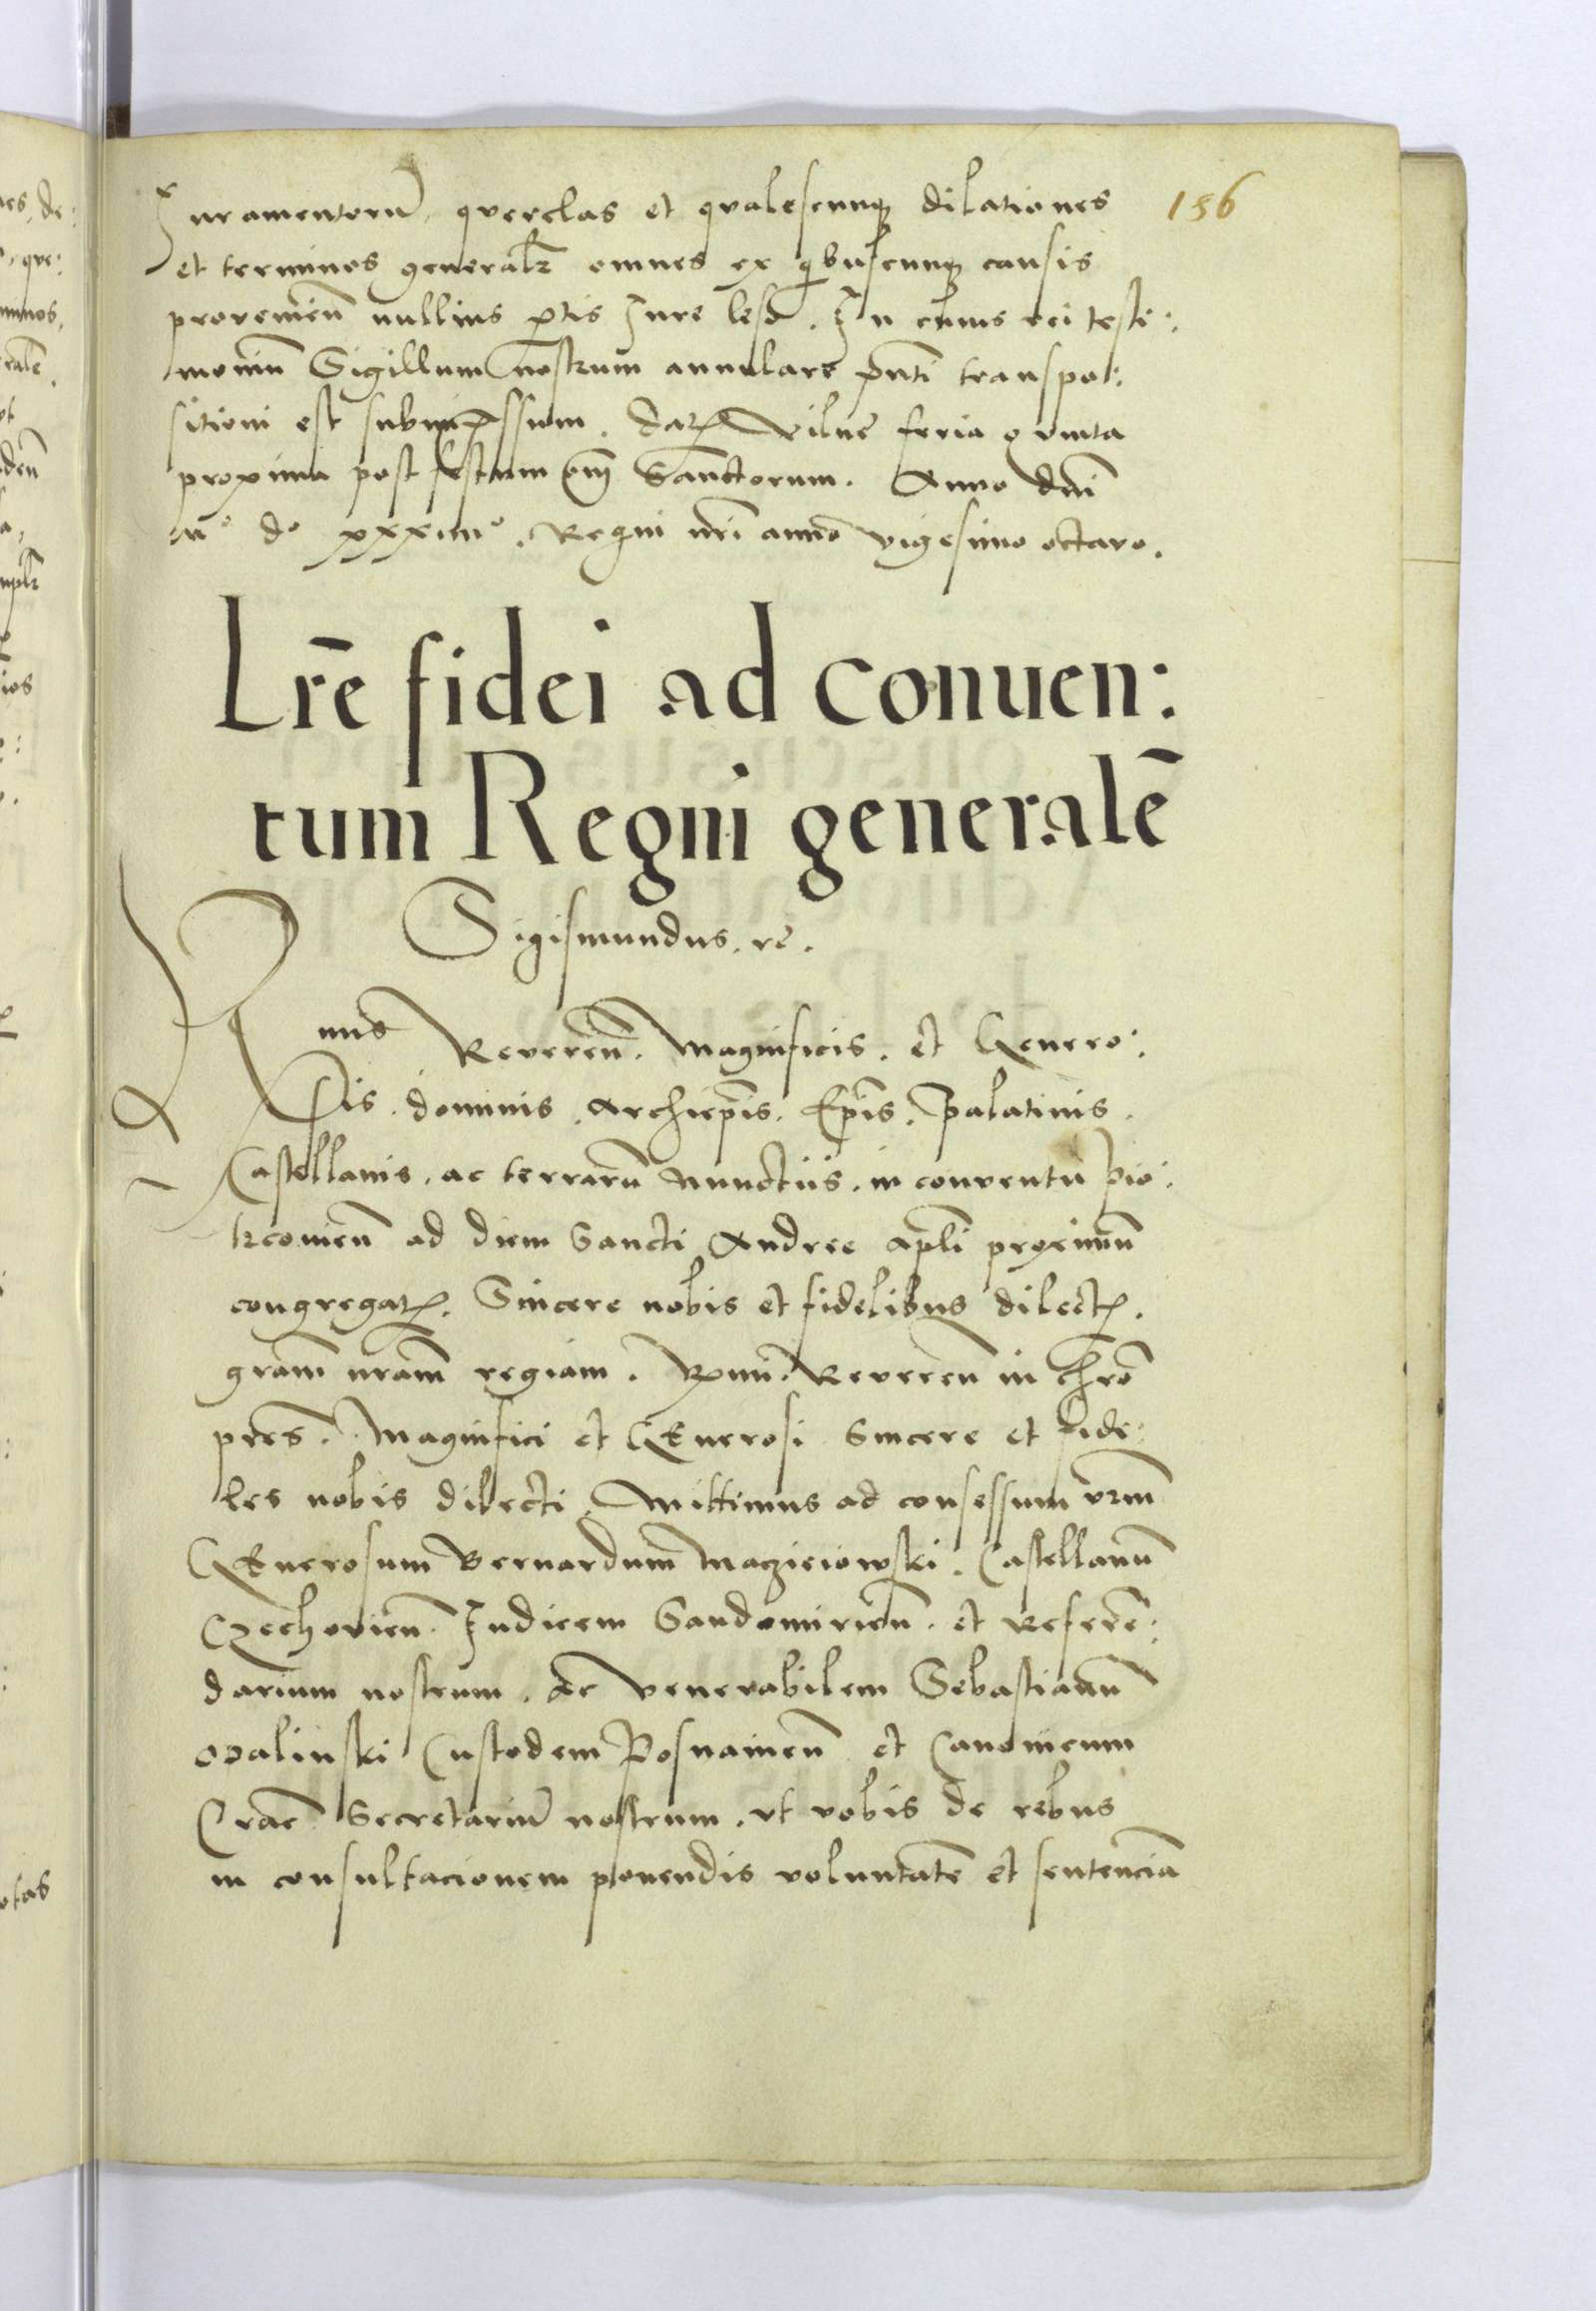 156
Juramentorū, querelas et qualescunq̨ dilationes
et terminos generalr̄ omnes ex qbuscunq̨ causis
provenieñ nullius ptis Jure leso. In cuius rei testi:
moniū Sigillum nostrum annulare pnti transpo:
sitioni est subimpssum. Datꝭ Vilnē feria quinta
proxima post festum om̄ Sanctorum. Anno dni
Mº dº xxxiiiiº. Regni nri anno vigesimo octavo.
Lrē fidei ad conuen:
tum Regni generalē
Sigismundus. rē.
Rmus Reveren̄. Magnificis. et Genero:
sis. dominis. Archiepīs. Epīs. Palatinis.
Castellanis. ac terrarū Nunctiis. in conventu pio:
trcovien̄ ad diem Sancti Andree apli proximū
congregatꝭ. Sincere nobis et fidelibus dilectꝭ.
gram̄ nram̄ regiam. Rmi. Reveren̄ in chro
pres̄. Magnifici et Generosi Sincere et fide:
les nobis dilecti. Mittimus ad consessum vrm̄
Generosum Bernardum Maczieiowski. Castellanū
Czechovien̄. Judicem Sandomirien̄. et Referē:
darium nostrum. Ac Venerabilem Sebastianū
Opalinski Custodem Posnanien̄ et Canonicum
Crac̄ Secretariū nostrum. vt vobis de rebus
in consultacionem ponendis voluntatē et sentenciā